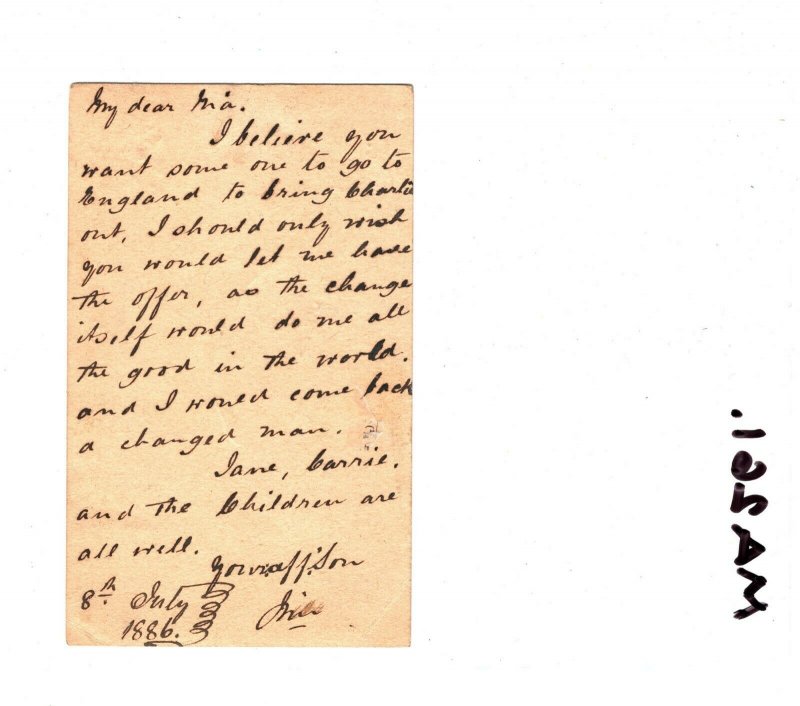 My dear Ma.
I believe you
want some one to go to
England to bring Charlie
out, I should only wish
you would let me have
the offer, as the change
itself would do me all
the good in the world.
and I would come back
a changed man.
Jane, Carrie.
and the Children are
all well.
Your aff. Son
8th July
1886.
MA251.